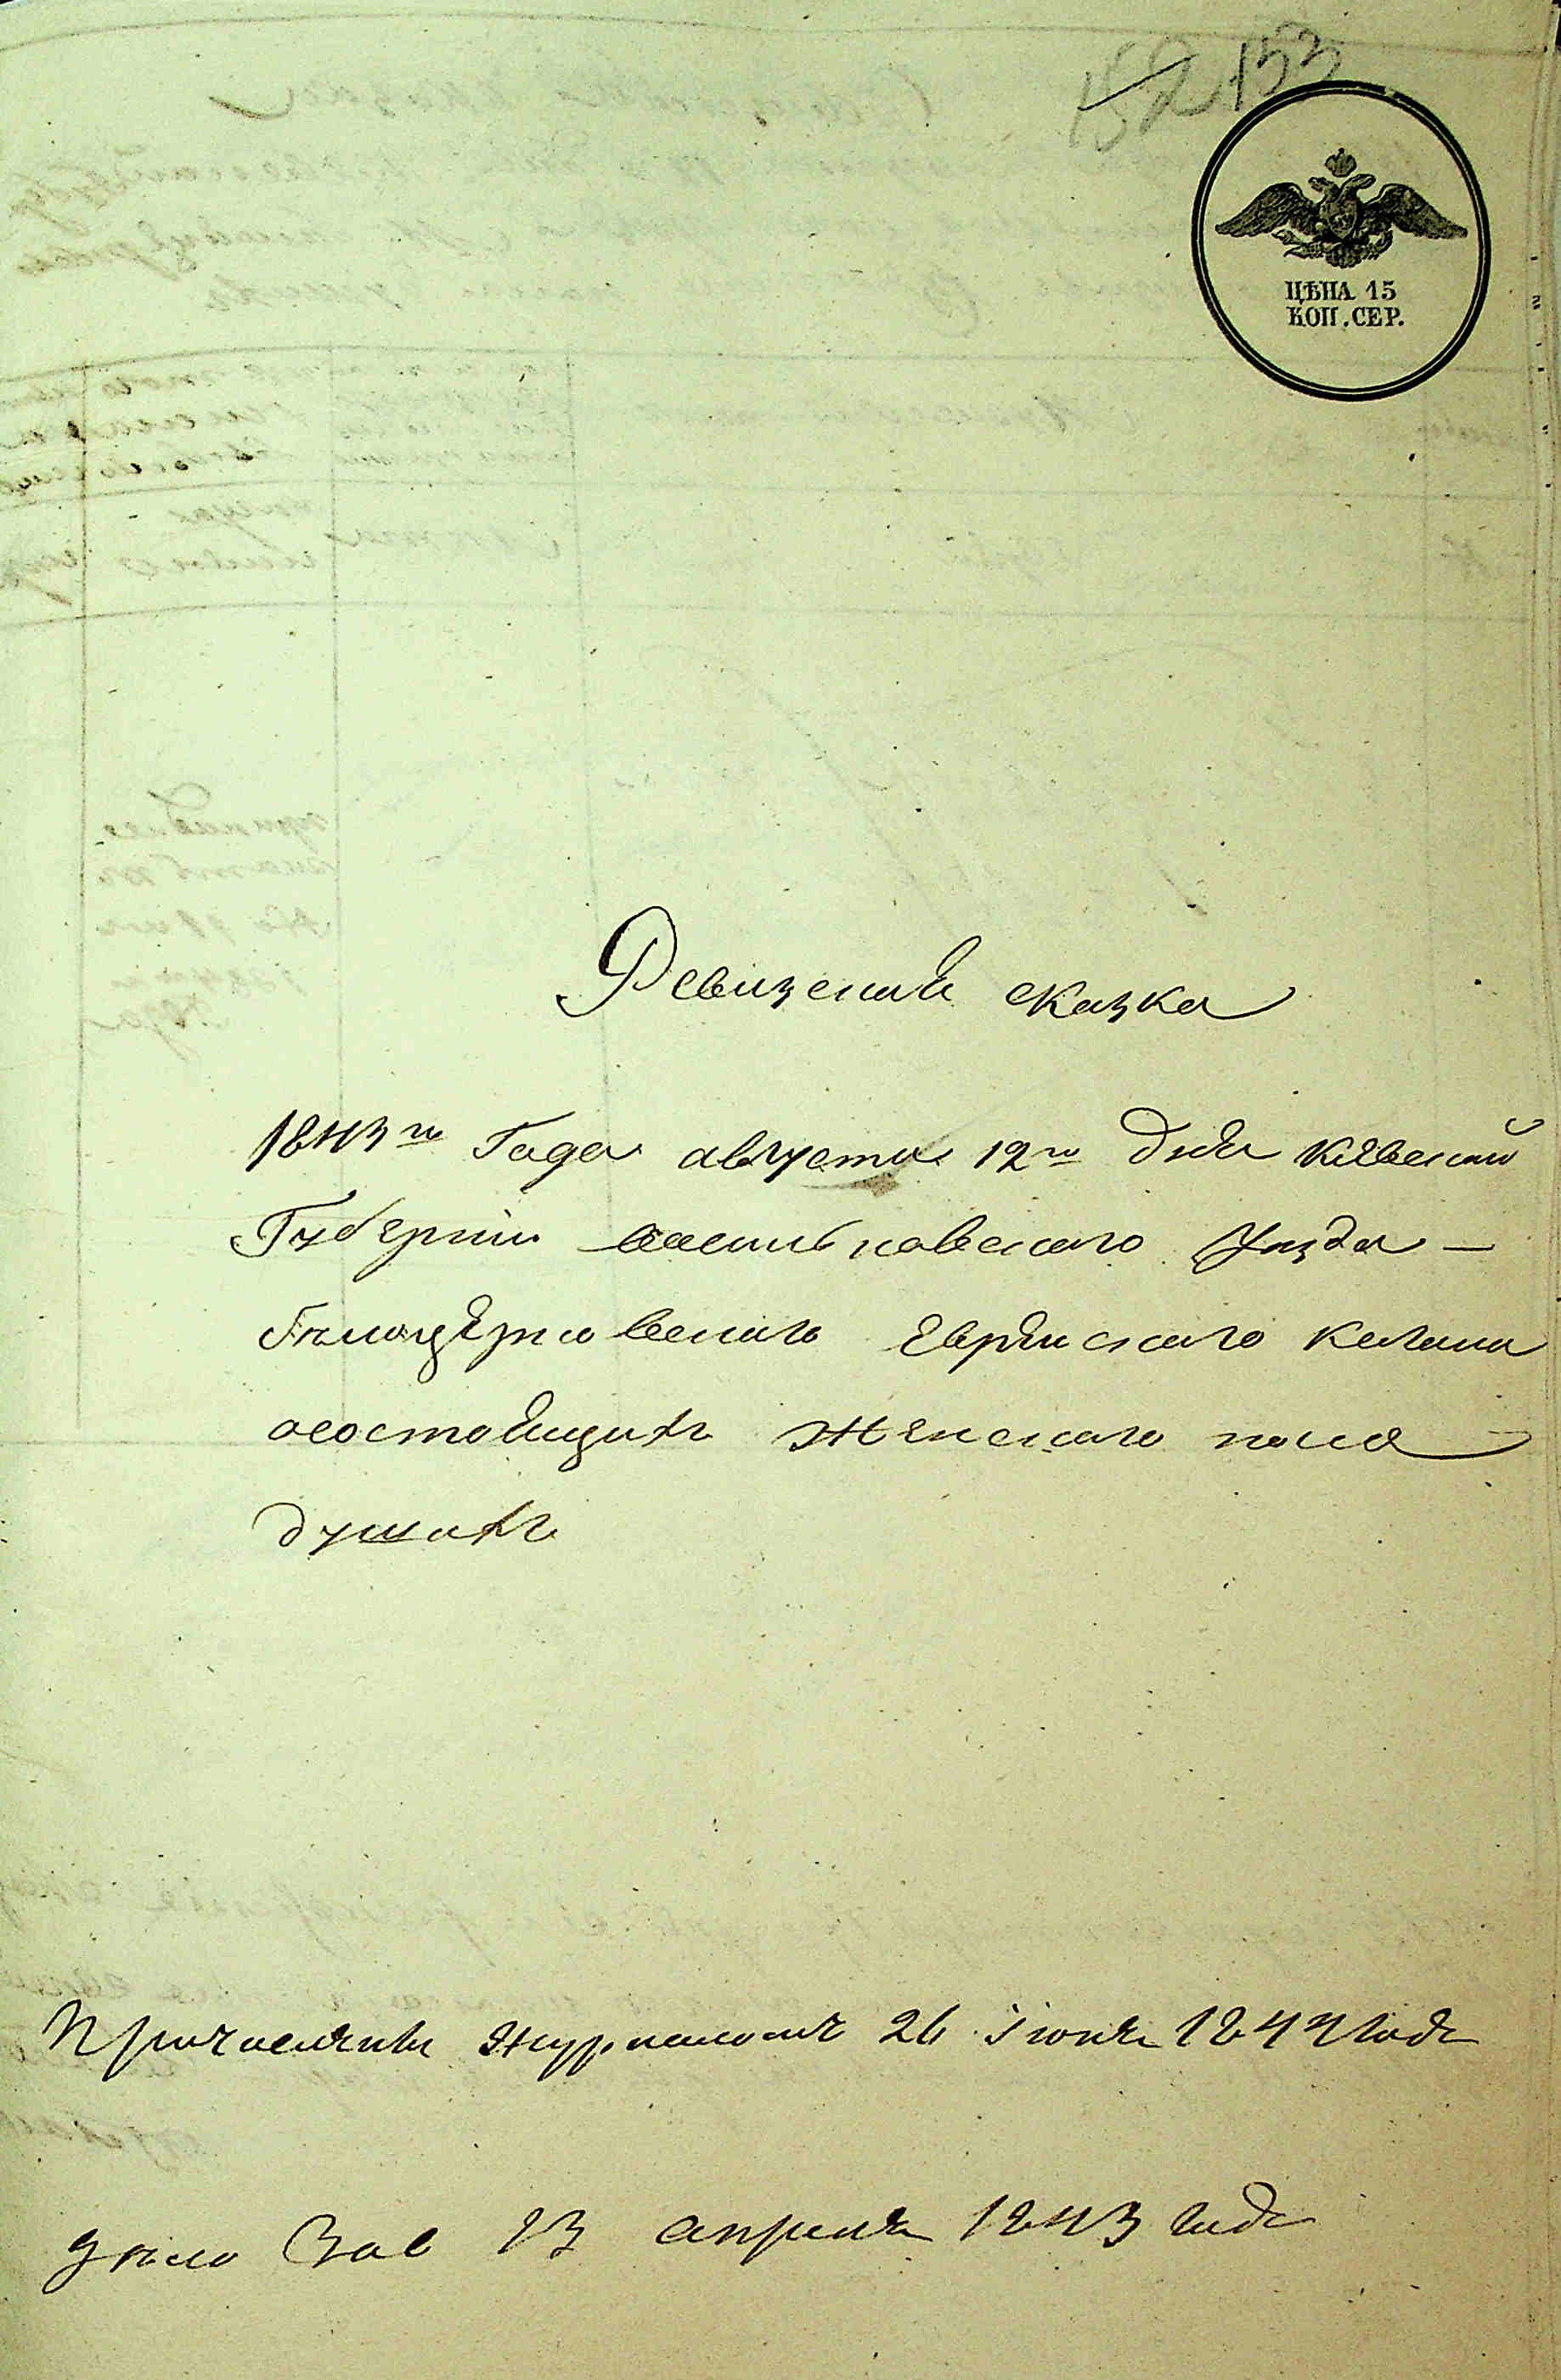 152 153
ЦѢНА 15
КОП. СЕР.
Ревизская сказка
1843го Года августа 12го дня Киевской
Губернии Васильковского уезда —
Белоцерковского Еврейского кагала
о состоящих женского пола
душах
Причислены журналом 26 июня 1844 года
дело Зав 13 апреля 1843 года